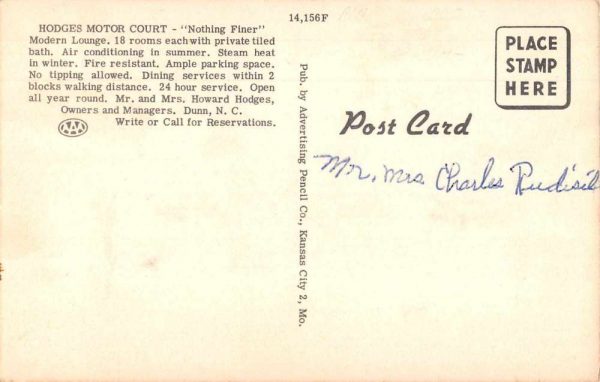 14,156F
HODGES MOTOR COURT - "Nothing Finer"
Modern Lounge. 18 rooms each with private tiled
bath. Air conditioning in summer. Steam heat
in winter. Fire resistant. Ample parking space.
No tipping allowed. Dining services within 2
blocks walking distance. 24 hour service. Open
all year round. Mr. and Mrs. Howard Hodges,
Owners and Managers. Dunn, N. C.
AAA
Write or Call for Reservations.
Pub. by Advertising Pencil Co., Kansas City 2, Mo.
PLACE
STAMP
HERE
Post Card
Mr, Mrs Charles Rudisil